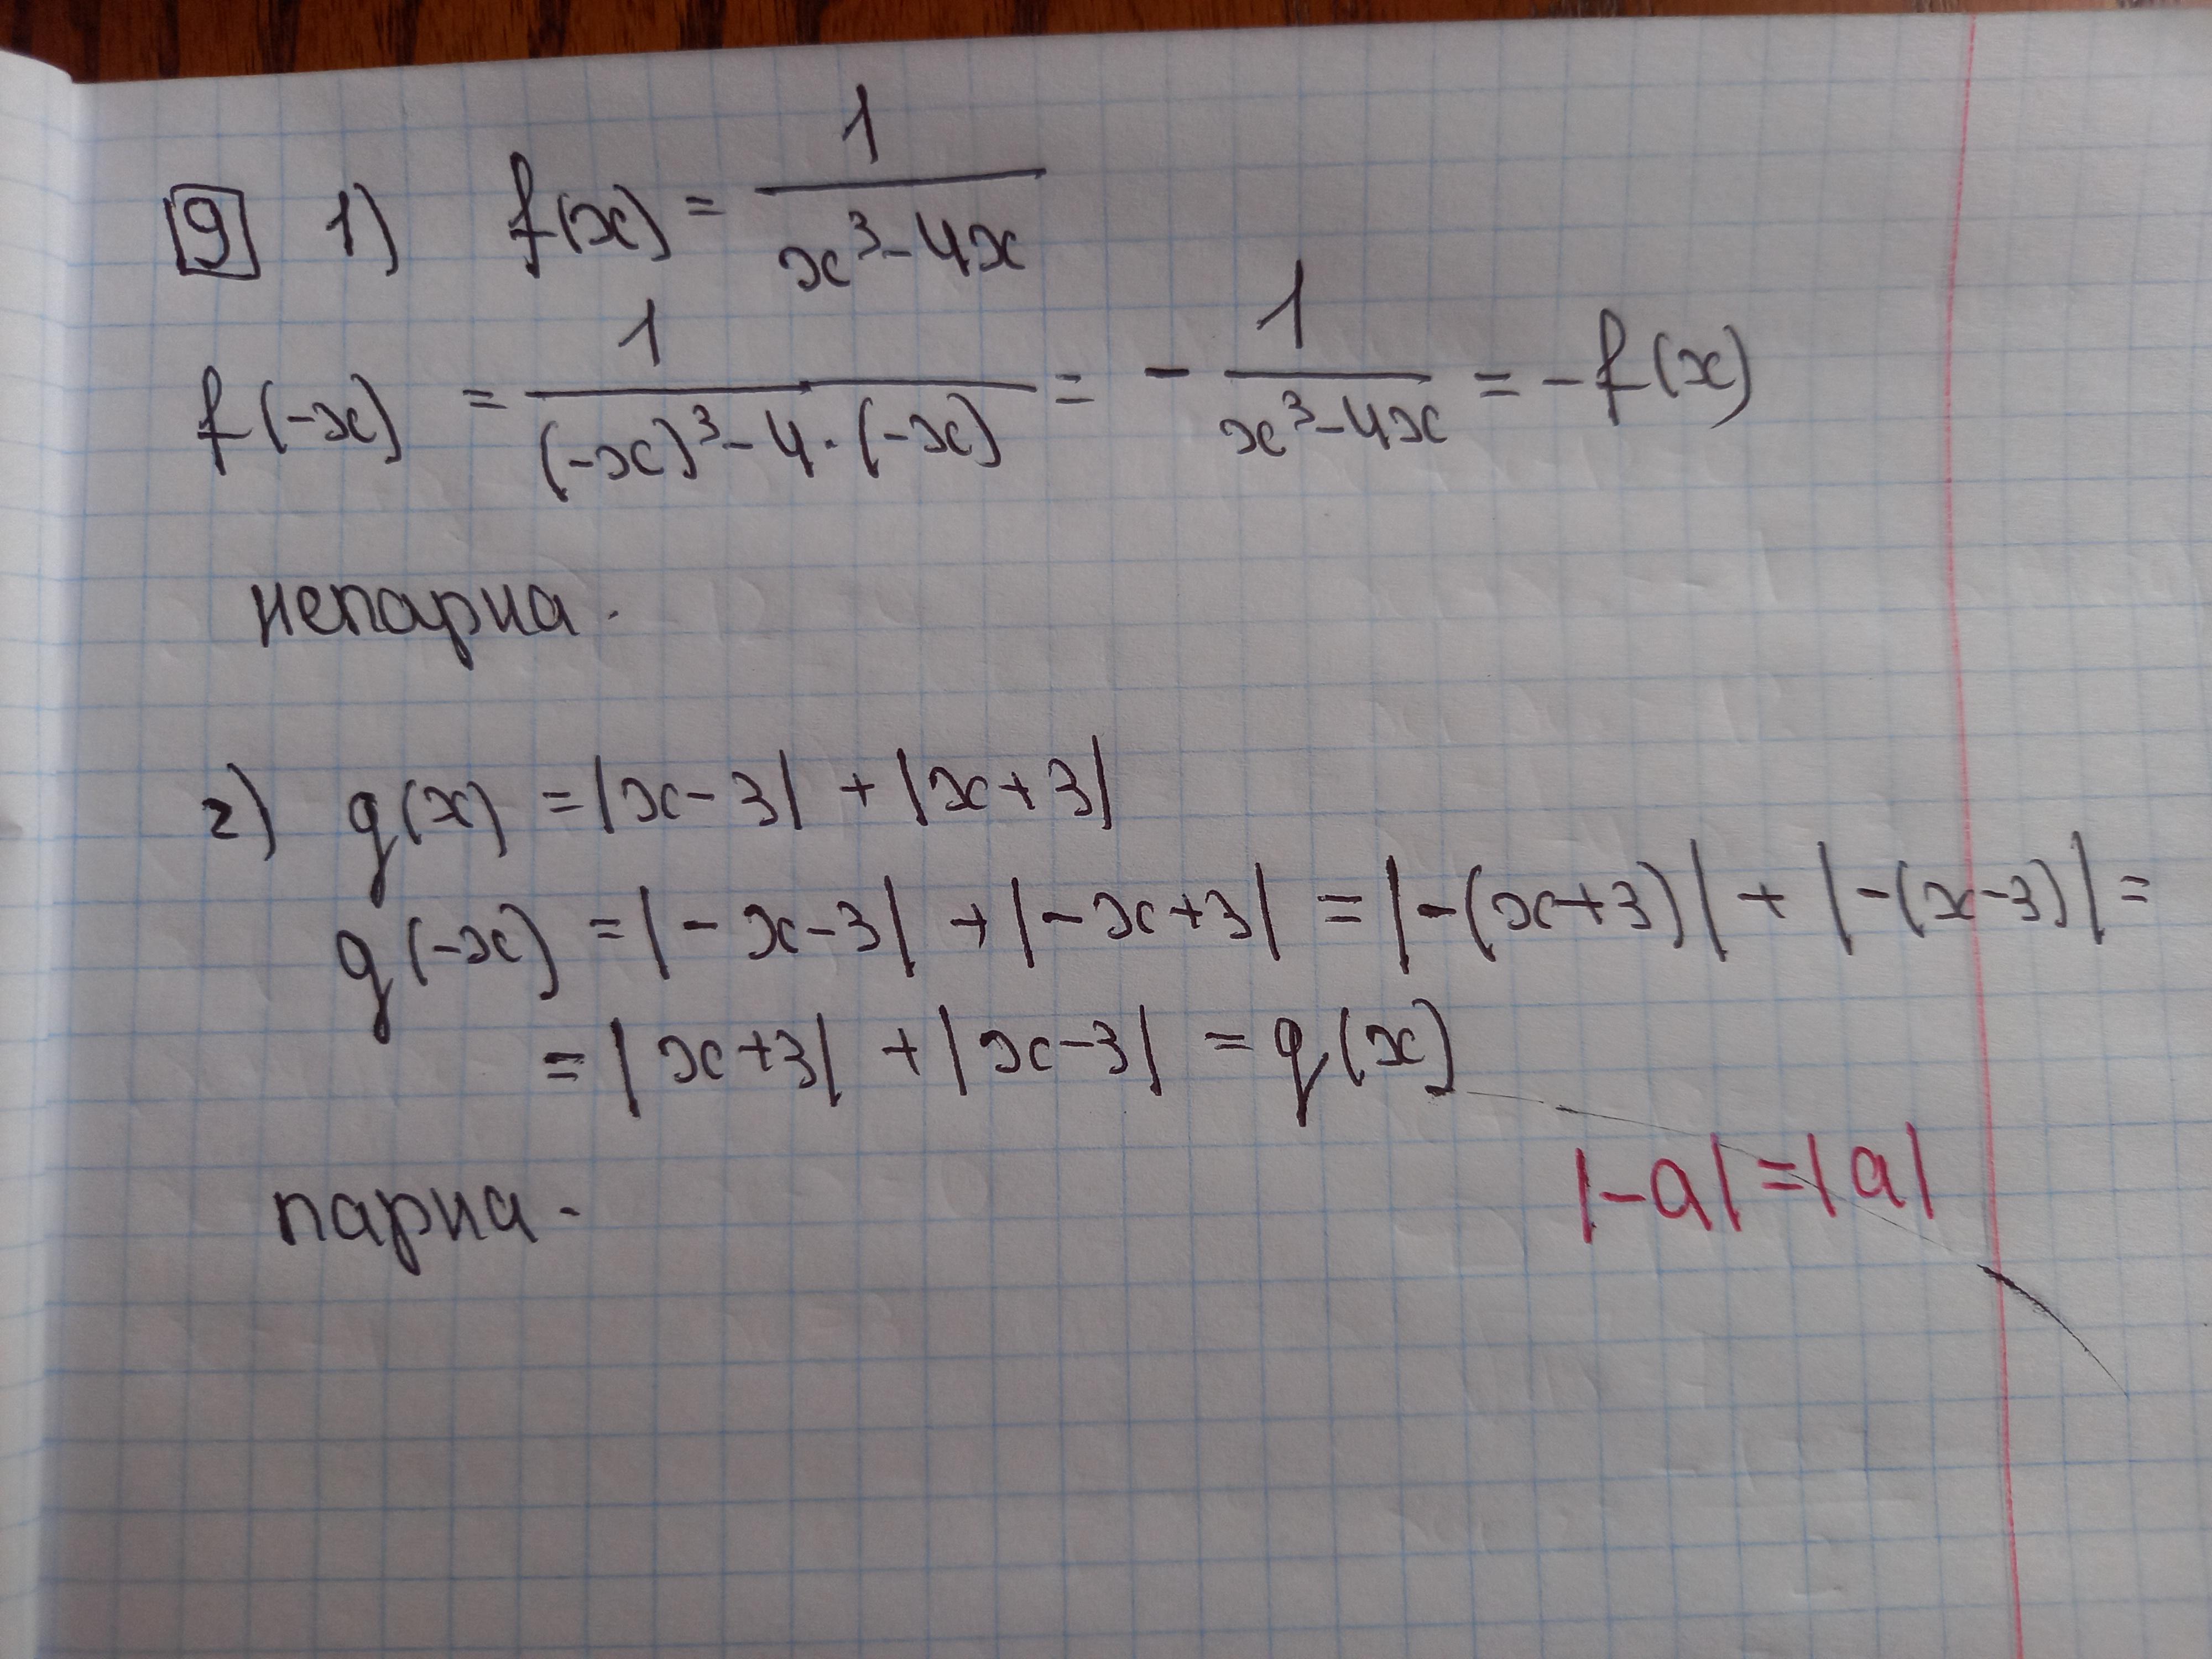 9 1) f(x) = 1/(x³-4x)
f(-x) = 1/((-x)³-4·(-x)) = - 1/(x³-4x) = -f(x)
непарна.
2) g(x) = |x-3| + |x+3|
g(-x) = |-x-3| + |-x+3| = |-(x+3)| + |-(x-3)| =
= |x+3| + |x-3| = g(x)
|-a| = |a|
парна.